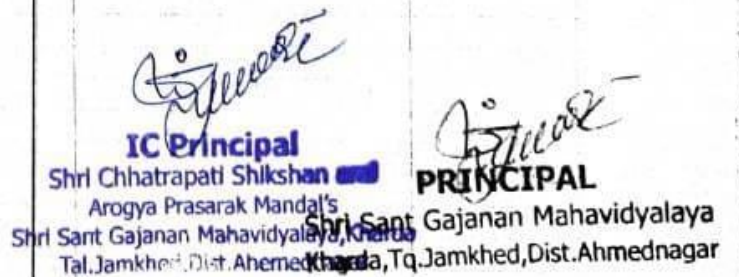 IC Principal
Shri Chhatrapati Shikshan
Arogya Prasarak Mandal's
Shri Sant Gajanan Mahavidyalaya, Kharda
Tal.Jamkhed.Dist.Ahemednagar
PRINCIPAL
Shri Sant Gajanan Mahavidyalaya
Kharda,Tq.Jamkhed,Dist.Ahmednagar